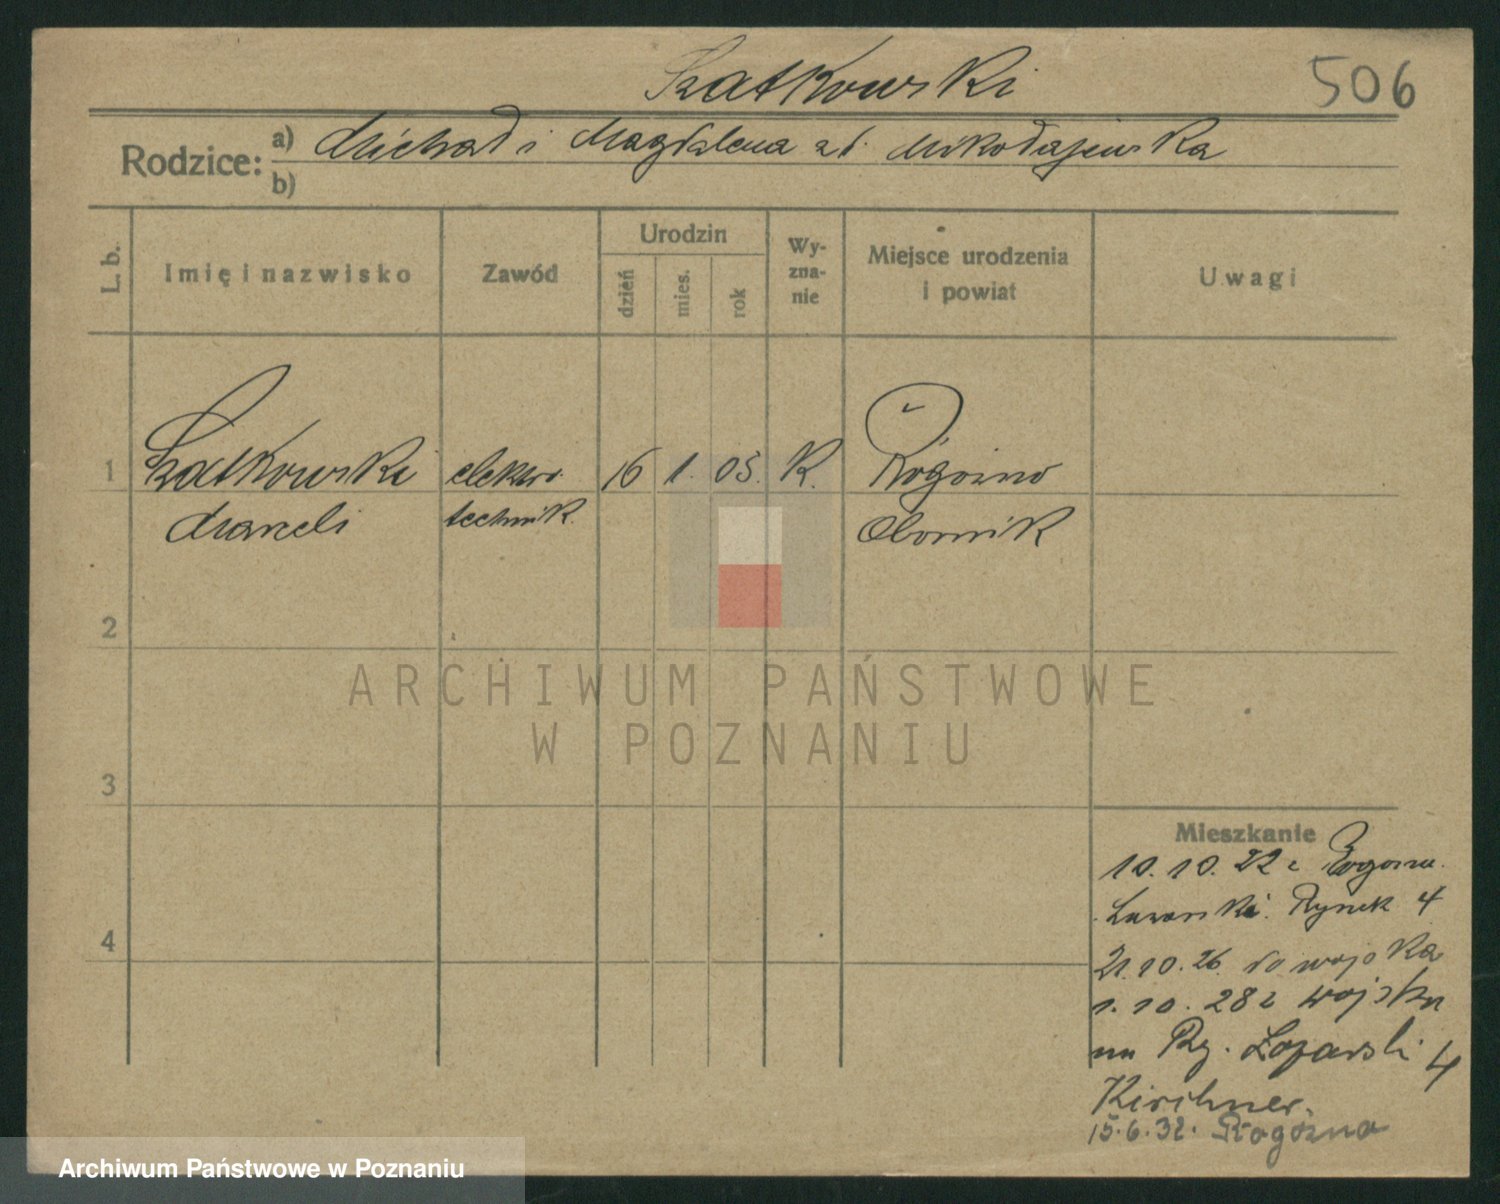 Szatkowski
506
Rodzice: a) Michał i Magdalena z d. Mikołajewska
b)
L. b.
Imię i nazwisko
Zawód
Urodzin
dzień
mies.
rok
Wy-
zna-
nie
Miejsce urodzenia
i powiat
Uwagi
1 Szatkowski elektro 16 1. 05. K. Rogoźno
Marceli technik. Obornik
2
3
4
ARCHIWUM PAŃSTWOWE
W POZNANIU
Mieszkanie
10.10.22 z Rogozna
Rynek 4
21.10.26. do wojska
1.10.28 z wojska
na Ry. 4
Kirchner.
15.6.32. Rogoźna
Archiwum Państwowe w Poznaniu